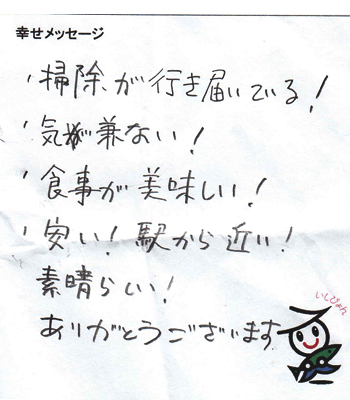 幸せメッセージ
'掃除が行き届いている!
'気が兼ない!
'食事が美味しい!
'安い!駅から近い!
素晴らしい!
ありがとうございます
いしぴょん